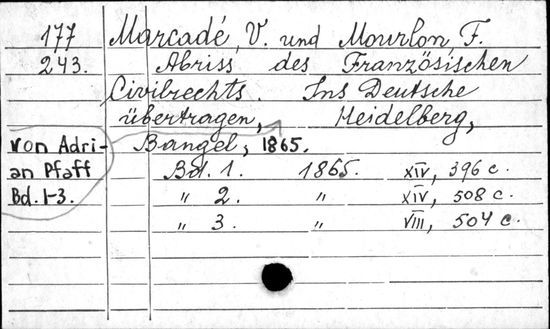 177 Marcadé, V. und Mourlon, F.
243. Abriss des Französischen
Civilrechts. Ins Deutsche
übertragen, Heidelberg,
von Adri- Bangel, 1865.
an Pfaff Bd. 1. 1865. XIV, 396 c.
Bd. 1-3. " 2. " XIV, 508 c.
" 3. " VIII, 504 c.